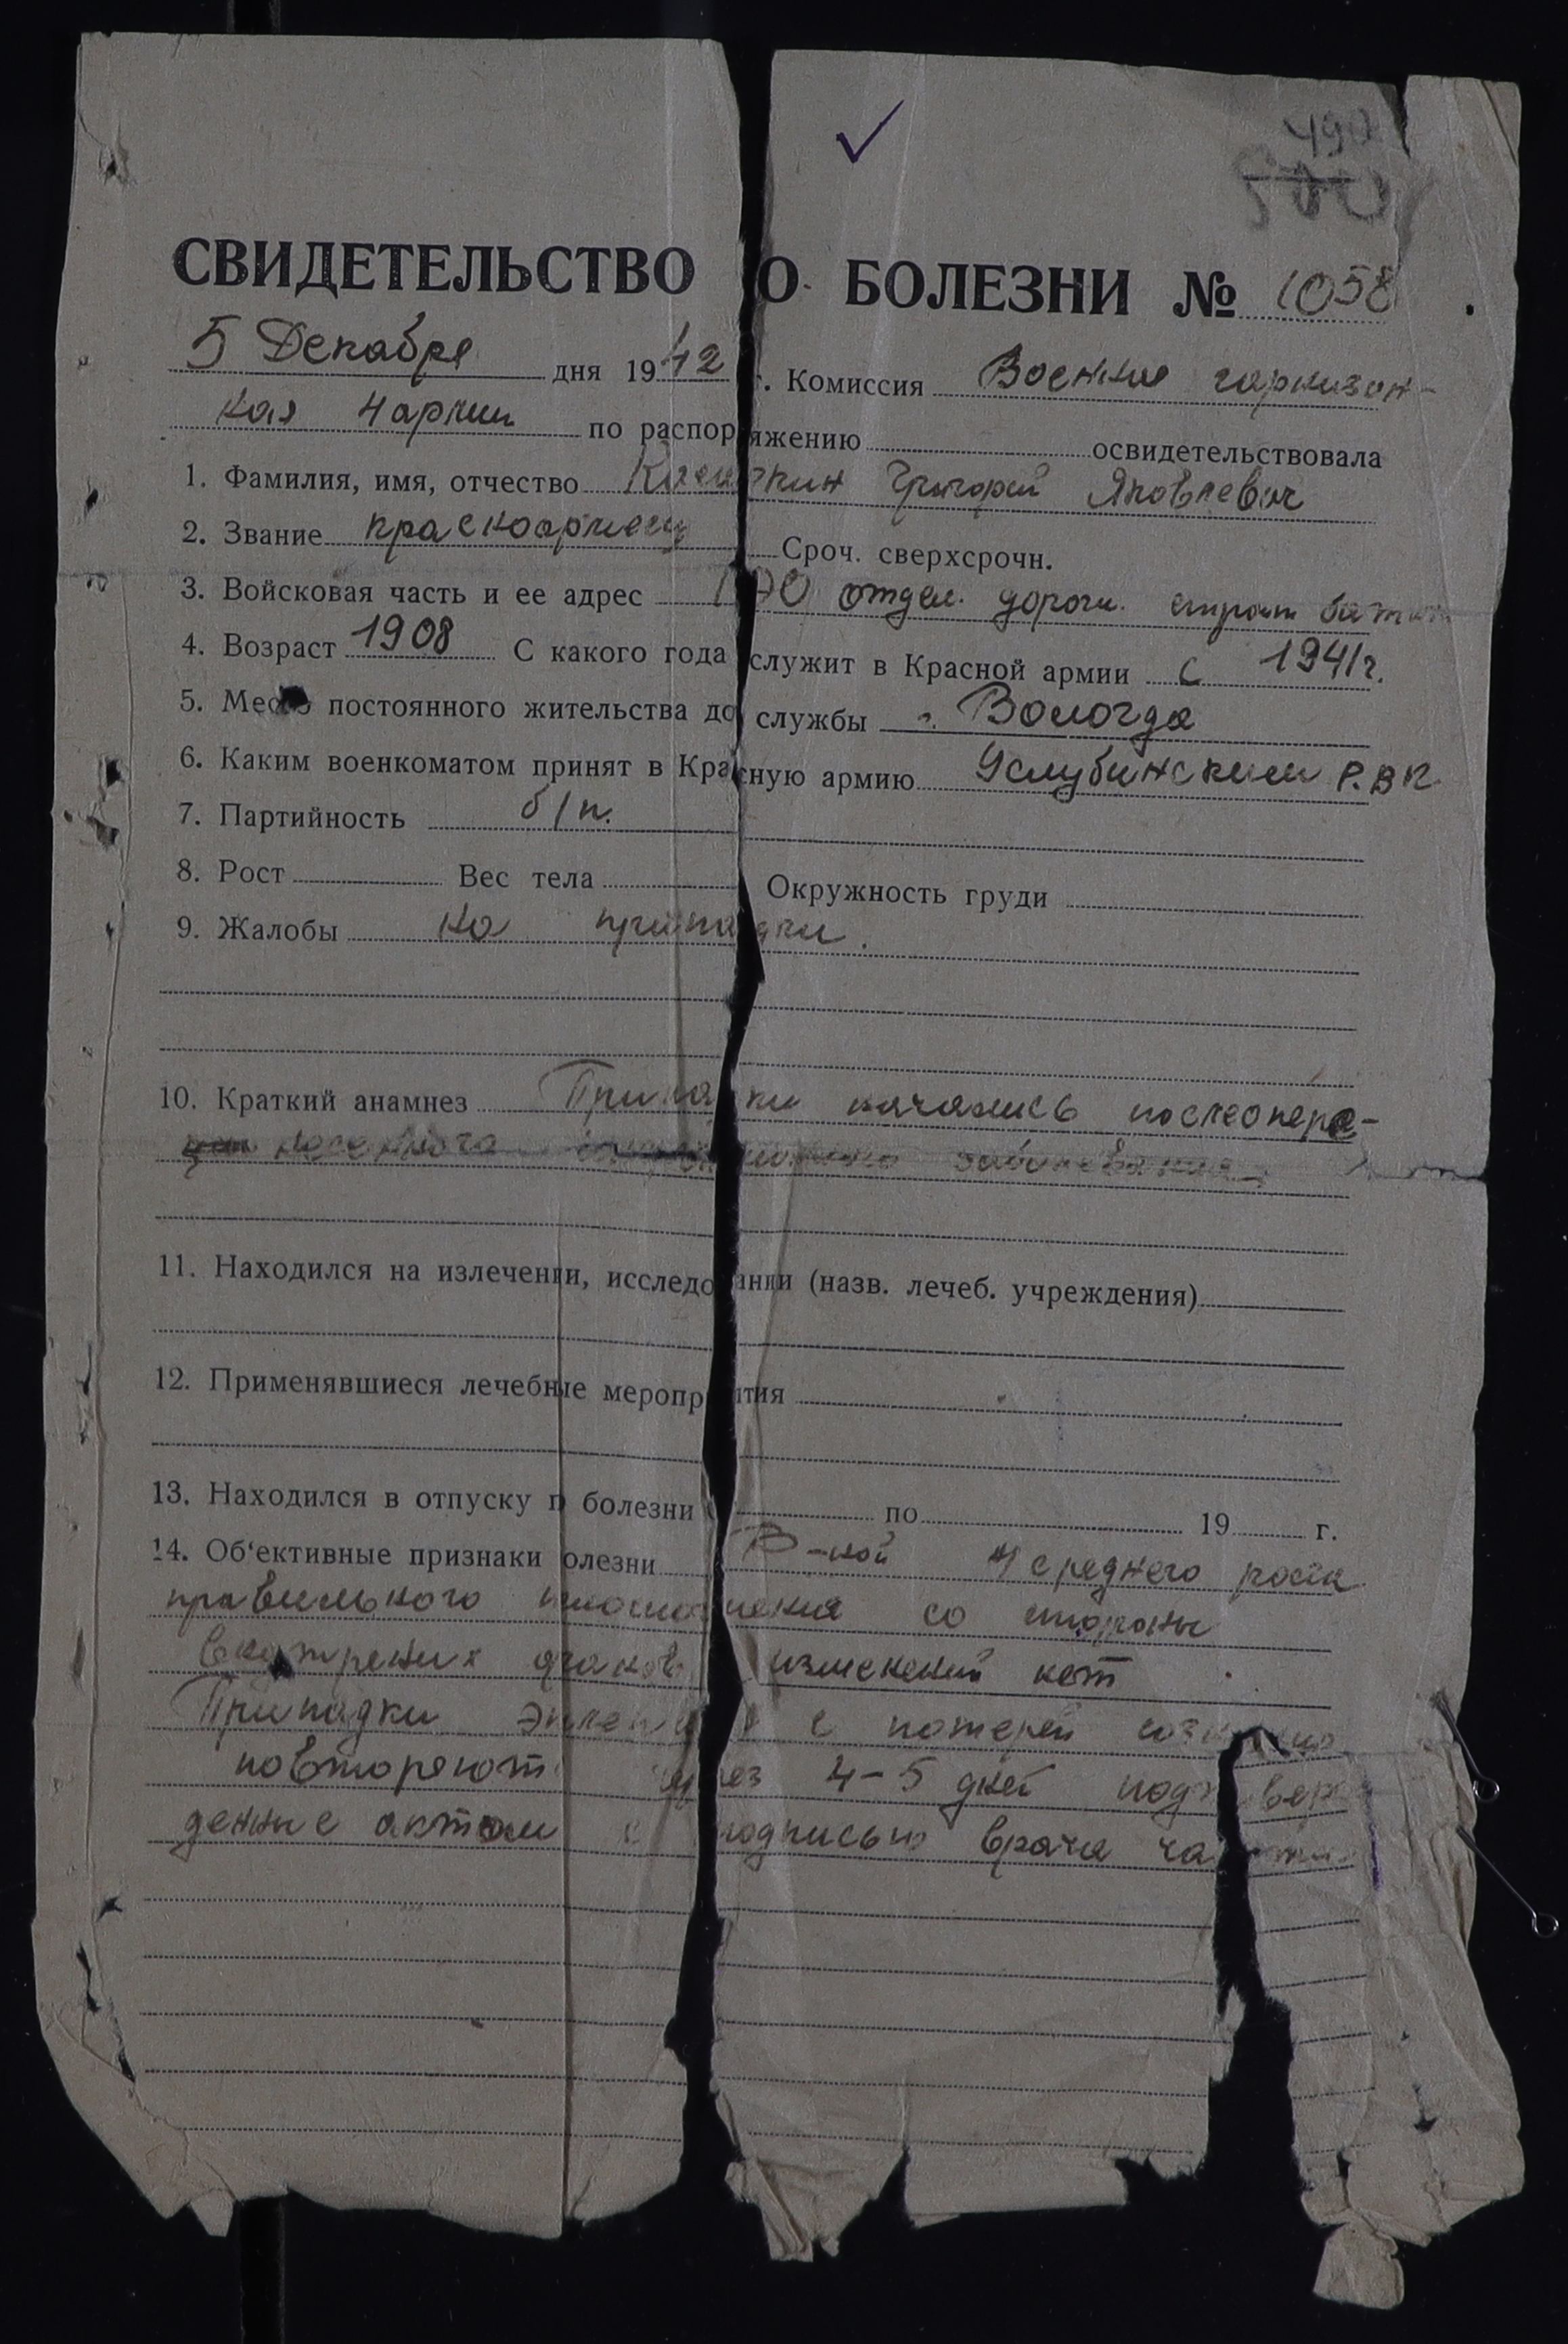 490
500
СВИДЕТЕЛЬСТВО О БОЛЕЗНИ № 1058
5 Декабря дня 1942 г. Комиссия Военная гарнизон-
ная 4 армии по распоряжению освидетельствовала
1. Фамилия, имя, отчество Григорий Яковлевич
2. Звание красноармеец Сроч. сверхсрочн.
3. Войсковая часть и ее адрес отдел. дорожн. строит батал
4. Возраст 1908 С какого года служит в Красной армии с 1941г.
5. Место постоянного жительства до службы г. Вологда
6. Каким военкоматом принят в Красную армию Р.В.К
7. Партийность б/п.
8. Рост Вес тела Окружность груди
9. Жалобы на припадки.
10. Краткий анамнез Припадки начались после
заболевания
11. Находился на излечении, исследовании (назв. лечеб. учреждения)
12. Применявшиеся лечебные мероприятия
13. Находился в отпуску п болезни по 19 г.
14. Об'ективные признаки болезни Б-ной среднего роста
правильного со стороны
внутрених органов изменений нет
Припадки с потерей
повторяют через 4-5 дней подтвер
денные актом с подписью врача части